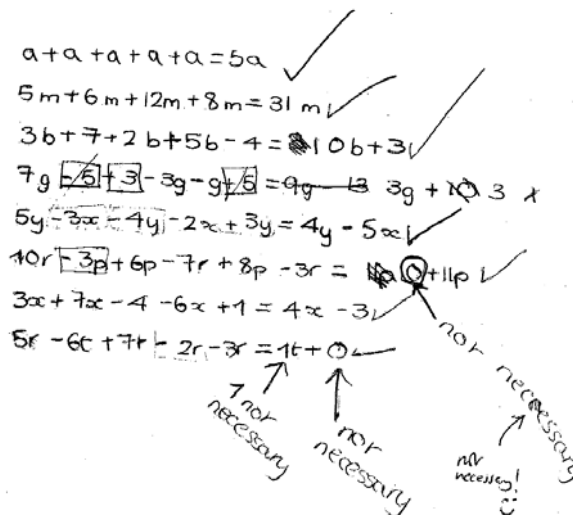 a + a + a + a + a = 5a
5m + 6m + 12m + 8m = 31m
3b + 7 + 2b + 5b - 4 = 10b + 3
7g - 5 + 3 - 3g - g + 5 = 9g 13 3g + 10 3 x
5y - 3x - 4y - 2x + 3y = 4y - 5x
10r - 3p + 6p - 7r + 8p - 3r = 0 + 11p
3x + 7x - 4 - 6x + 1 = 4x - 3
5r - 6t + 7t - 2r - 3r = 1t + 0
1 not necessary
not necessary
not necessary
not necessary!